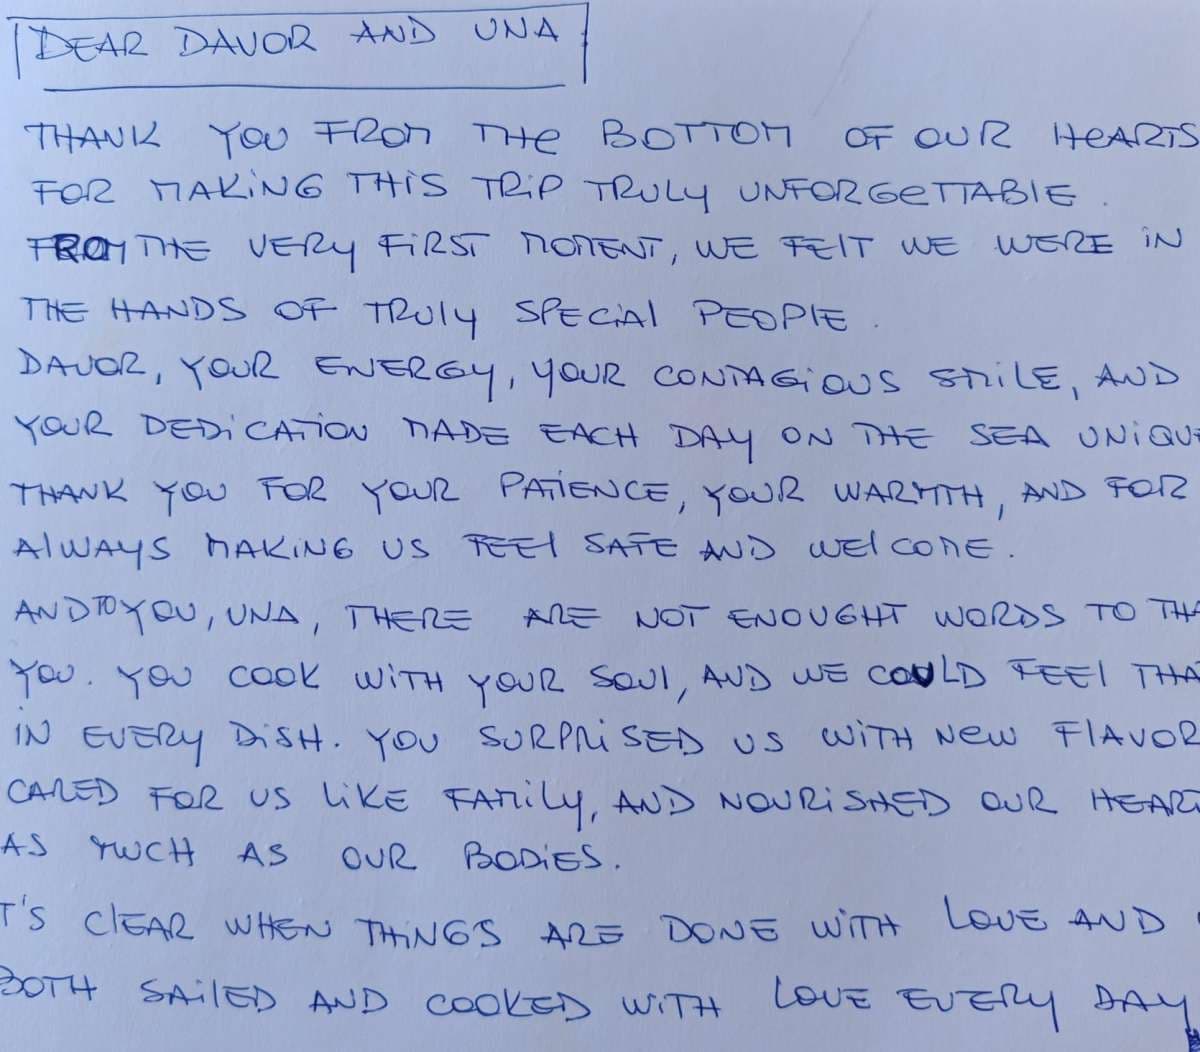 DEAR DAVOR AND UNA
THANK YOU FROM THE BOTTOM OF OUR HEARTS
FOR MAKING THIS TRIP TRULY UNFORGETTABLE.
FROM THE VERY FIRST MOMENT, WE FELT WE WERE IN
THE HANDS OF TRULY SPECIAL PEOPLE.
DAVOR, YOUR ENERGY, YOUR CONTAGIOUS SMILE, AND
YOUR DEDICATION MADE EACH DAY ON THE SEA UNIQUE
THANK YOU FOR YOUR PATIENCE, YOUR WARMTH, AND FOR
ALWAYS MAKING US FEEL SAFE AND WELCOME.
AND TO YOU, UNA, THERE ARE NOT ENOUGHT WORDS TO THA
YOU. YOU COOK WITH YOUR SOUL, AND WE COULD FEEL THA
IN EVERY DISH. YOU SURPRISED US WITH NEW FLAVOR
CARED FOR US LIKE FAMILY, AND NOURISHED OUR HEART
AS MUCH AS OUR BODIES.
T'S CLEAR WHEN THINGS ARE DONE WITH LOVE AND
BOTH SAILED AND COOKED WITH LOVE EVERY DAY